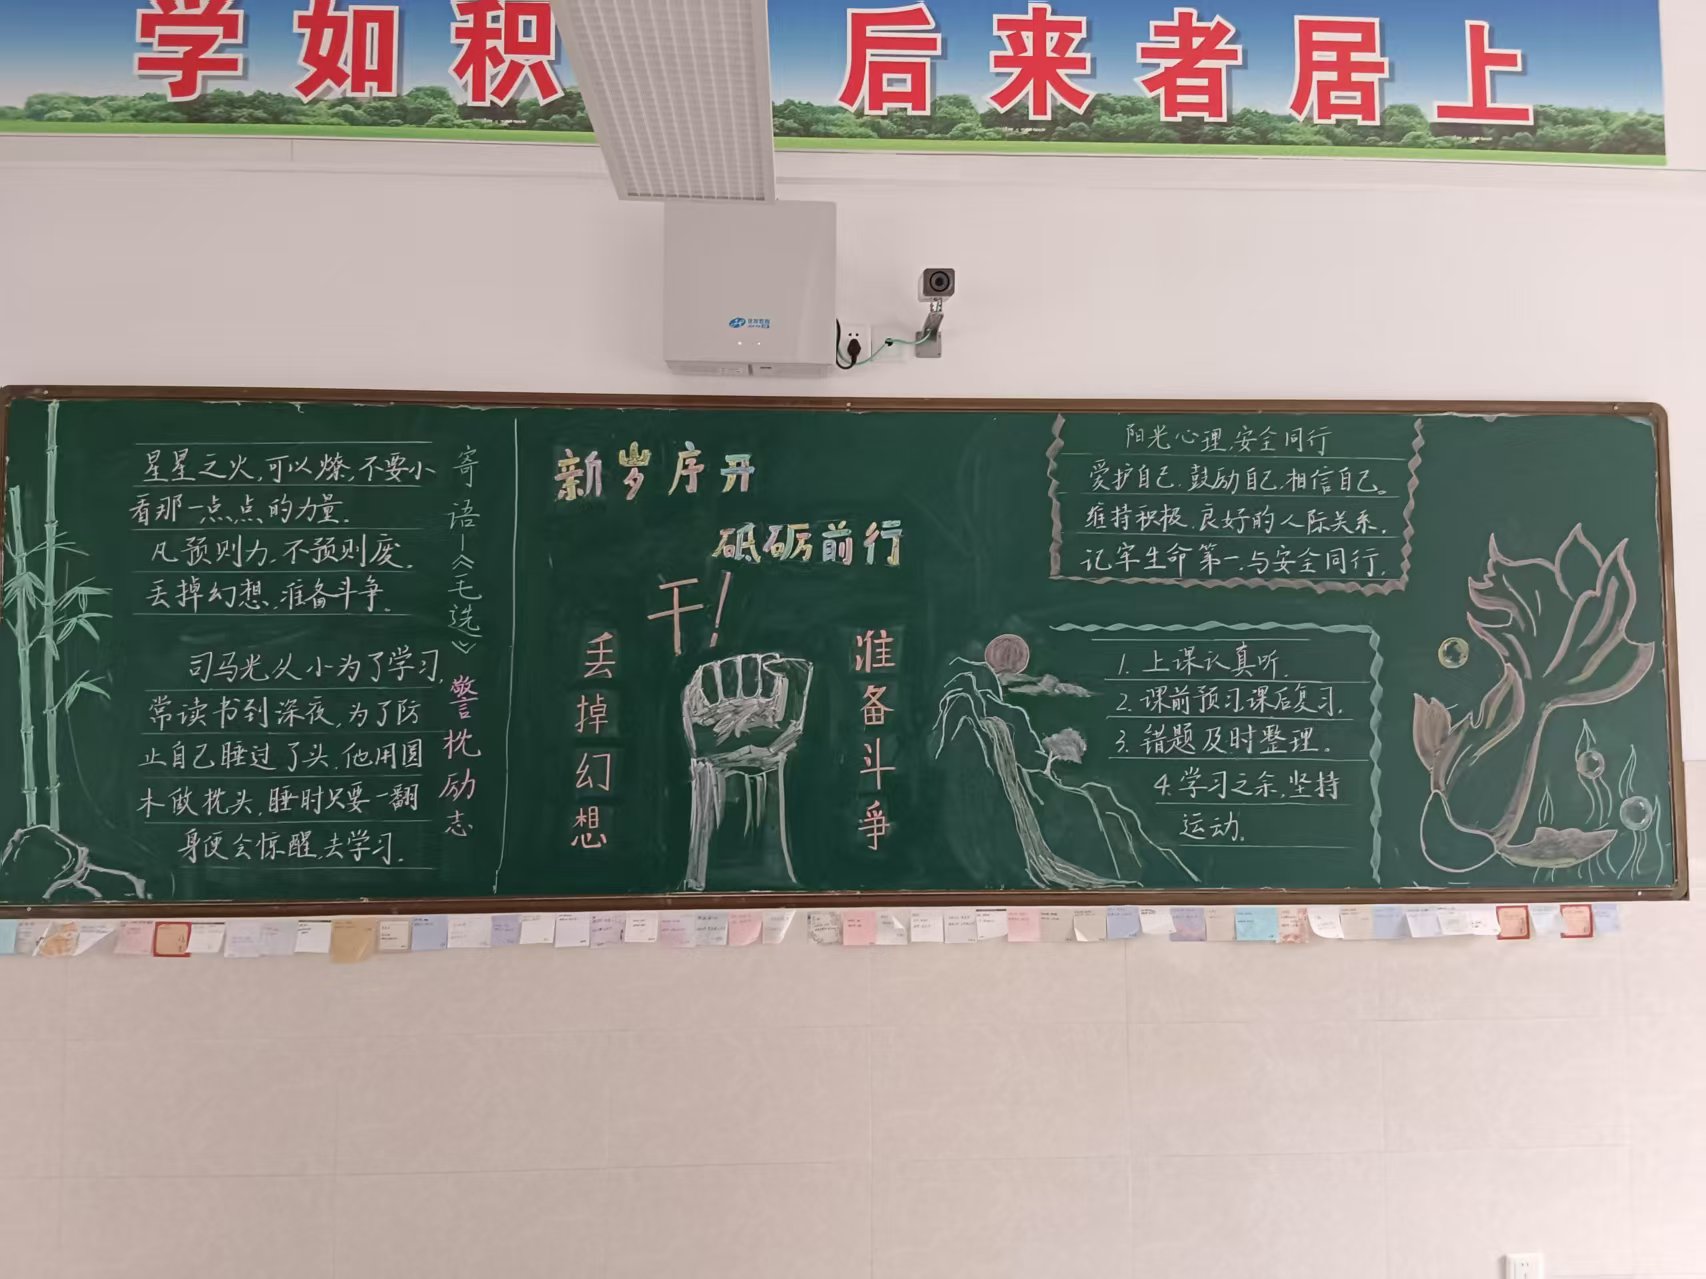 学如积
后来者居上
星星之火,可以燎,不要小
看那一点点的力量.
凡预则力,不预则废.
丢掉幻想,准备斗争.
寄语—《毛选》
司马光从小为了学习,
常读书到深夜,为了防
止自己睡过了头,他用圆
木做枕头,睡时只要一翻
身便会惊醒,去学习.
警枕励志
新岁序开
砥砺前行
干!
丢掉幻想
准备斗争
阳光心理,安全同行
爱护自己.鼓励自己.相信自己。
维持积极.良好的人际关系.
记牢生命第一.与安全同行.
1. 上课认真听.
2. 课前预习,课后复习.
3. 错题及时整理.
4. 学习之余,坚持
运动.